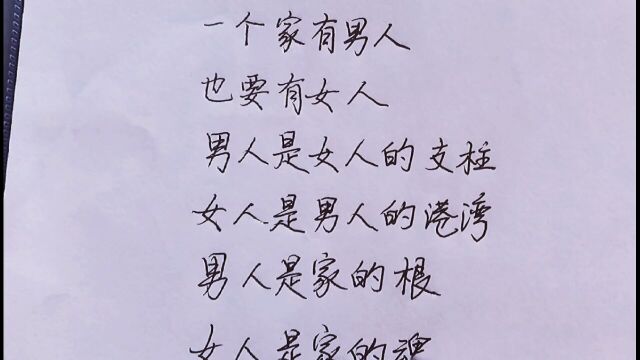 一个家有男人
也要有女人
男人是女人的支柱
女人是男人的港湾
男人是家的根
女人是家的魂